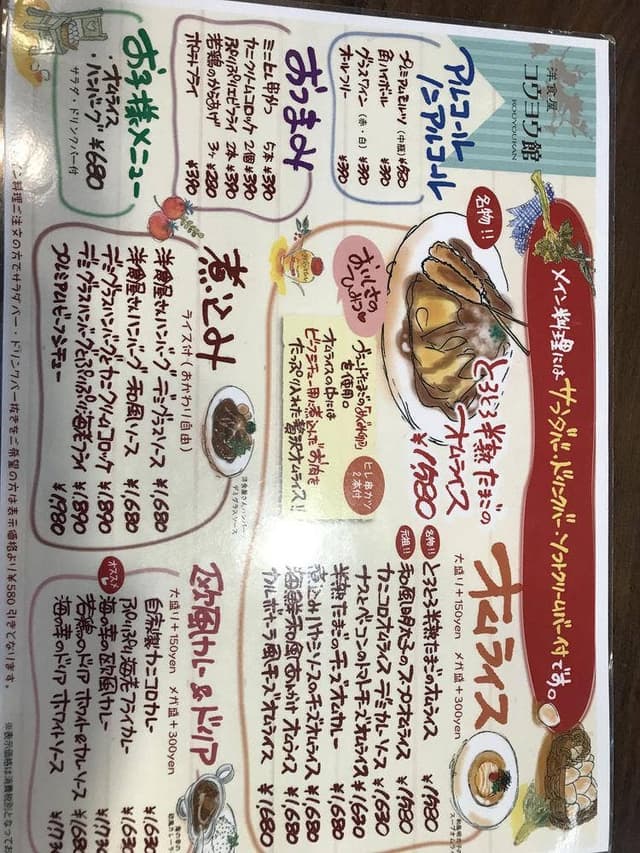 洋食屋
コウヨウ館
KOUYOUKAN
メイン料理には、サラダバー・ドリンクバー・ソフトクリームバー付です。
アルコール
ノンアルコール
プレミアムモルツ (中瓶) ¥520
角ハイボール ¥390
グラスワイン (赤・白) ¥390
オールフリー ¥390
おつまみ
ミニヒレ串かつ 5本 ¥390
カニクリームコロッケ 2個 ¥390
ぷりぷりエビフライ 2本 ¥390
若鶏のからあげ 3ヶ ¥280
ポテトフライ ¥390
お子様メニュー
・オムライス
・ハンバーグ ¥680
サラダ・ドリンクバー付
名物!!
とろとろ半熟たまごの
オムライス
¥1,980
おいしさの
ひみつ
ブランドたまご
使用。
オムライスの中には
ビーフシチュー用に煮込んだお肉を
たっぷり入れた贅沢オムライス!!
ヒレ串カツ
2本付
オムライス
大盛り+150yen メガ盛+300yen
名物!! とろとろ半熟たまごのオムライス ¥1,980
元祖!! 和風明太子のスープオムライス ¥1,980
カニコロオムライス デミカレーソース ¥1,630
ナスとベーコンのトマトチーズオムライス ¥1,680
半熟たまごのチーズオムカレー ¥1,680
煮込みハヤシソースのチーズオムライス ¥1,680
海鮮和風あんかけオムライス ¥1,680
カルボナーラ風チーズオムライス ¥1,680
煮込み
ライス付(おかわり自由)
洋食屋さんハンバーグ デミグラスソース ¥1,680
洋食屋さんハンバーグ 和風ソース ¥1,680
デミグラスハンバーグとカニクリームコロッケ ¥1,890
デミグラスハンバーグとぷりぷり海老フライ ¥1,890
プレミアムビーフシチュー ¥1,980
洋食屋さんハンバーグ
デミグラスソース
欧風カレー&ドリア
大盛り+150yen メガ盛+300yen
自家製カニコロカレー ¥1,630
ぷりぷり海老フライカレー ¥1,630
オススメ 海の幸の欧風カレー
若鶏のドリア ホワイト&カレーソース
海の幸のドリア ホワイトソース
料理ご注文の方でサラダバー・ドリンクバー抜きをご希望の方は表示価格より¥580引きとなります。
※表示価格は消費税別となって